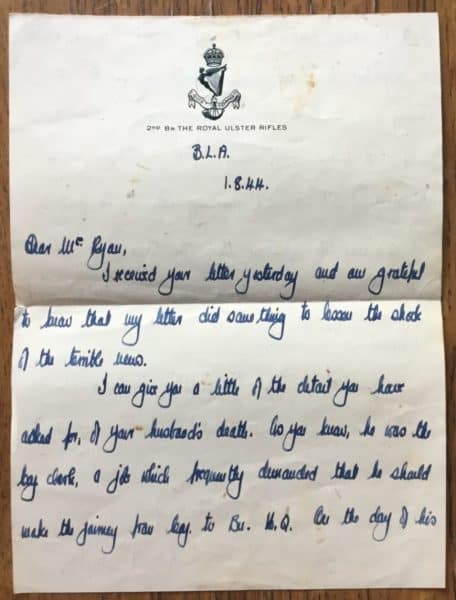 2ND BN THE ROYAL ULSTER RIFLES
B.L.A.
1.8.44.
Dear Mrs Ryan,
I received your letter yesterday and am grateful
to know that my letter did something to lessen the shock
of the terrible news.
I can give you a little of the detail you have
asked for, of your husband's death. As you know, he was the
Coy clerk, a job which frequently demanded that he should
make the journey from Coy. to Bn. H.Q. On the day of his